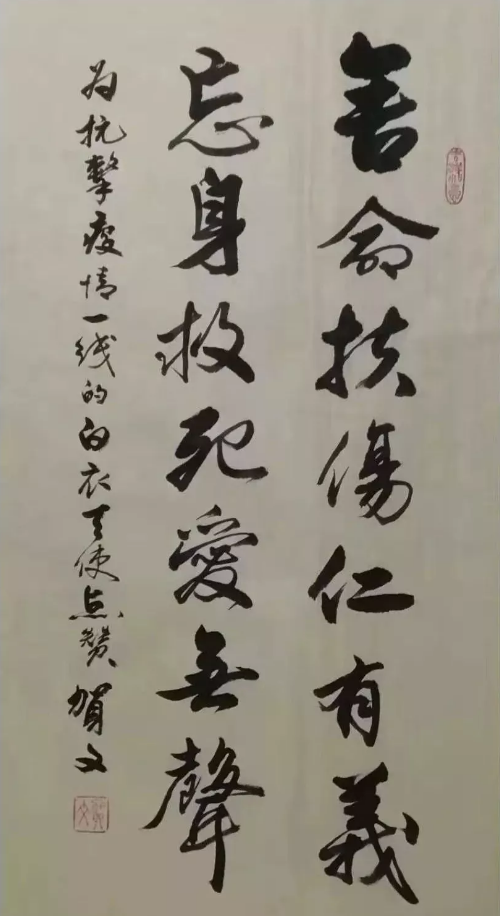 善命扶傷仁有義
忘身救死愛無聲
为抗擊疫情一线的白衣天使点赞 賀文